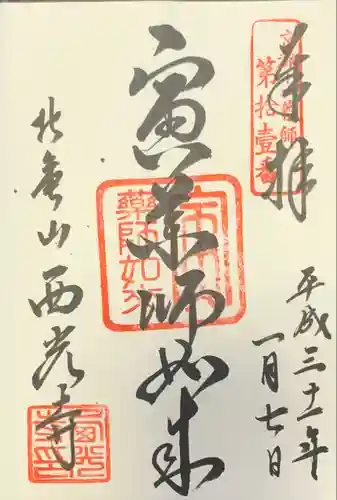 奉拝
第拾壹番
平成三十一年
一月七日
寅薬師如来
薬師如来
北亀山
西光寺